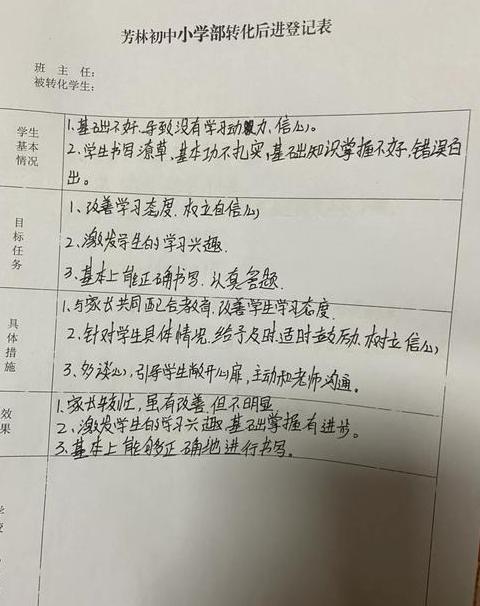 芳林初中小学部转化后进登记表
班 主 任:
被转化学生:
学生
基本
情况
1、基础不好、导致没有学习动力、信心。
2、学生书写潦草、基本功不扎实,基础知识掌握不好,错误百
出。
目
标
任
务
1、改善学习态度、权立自信心
2、激发学生的学习兴趣.
3、基本上能正确书写、认真答题.
具
体
措
施
1、与家长共同配合教育、改善学生学习态度.
2、针对学生具体情况、给予及时、适时鼓励、树立信心,
3、多谈心,引导学生敞开心扉,主动和老师沟通。
效
果
1、家长较忙,虽有改善,但不明显
2、激发学生的学习兴趣,基础掌握有进步。
3、基本上能够正确地进行书写。